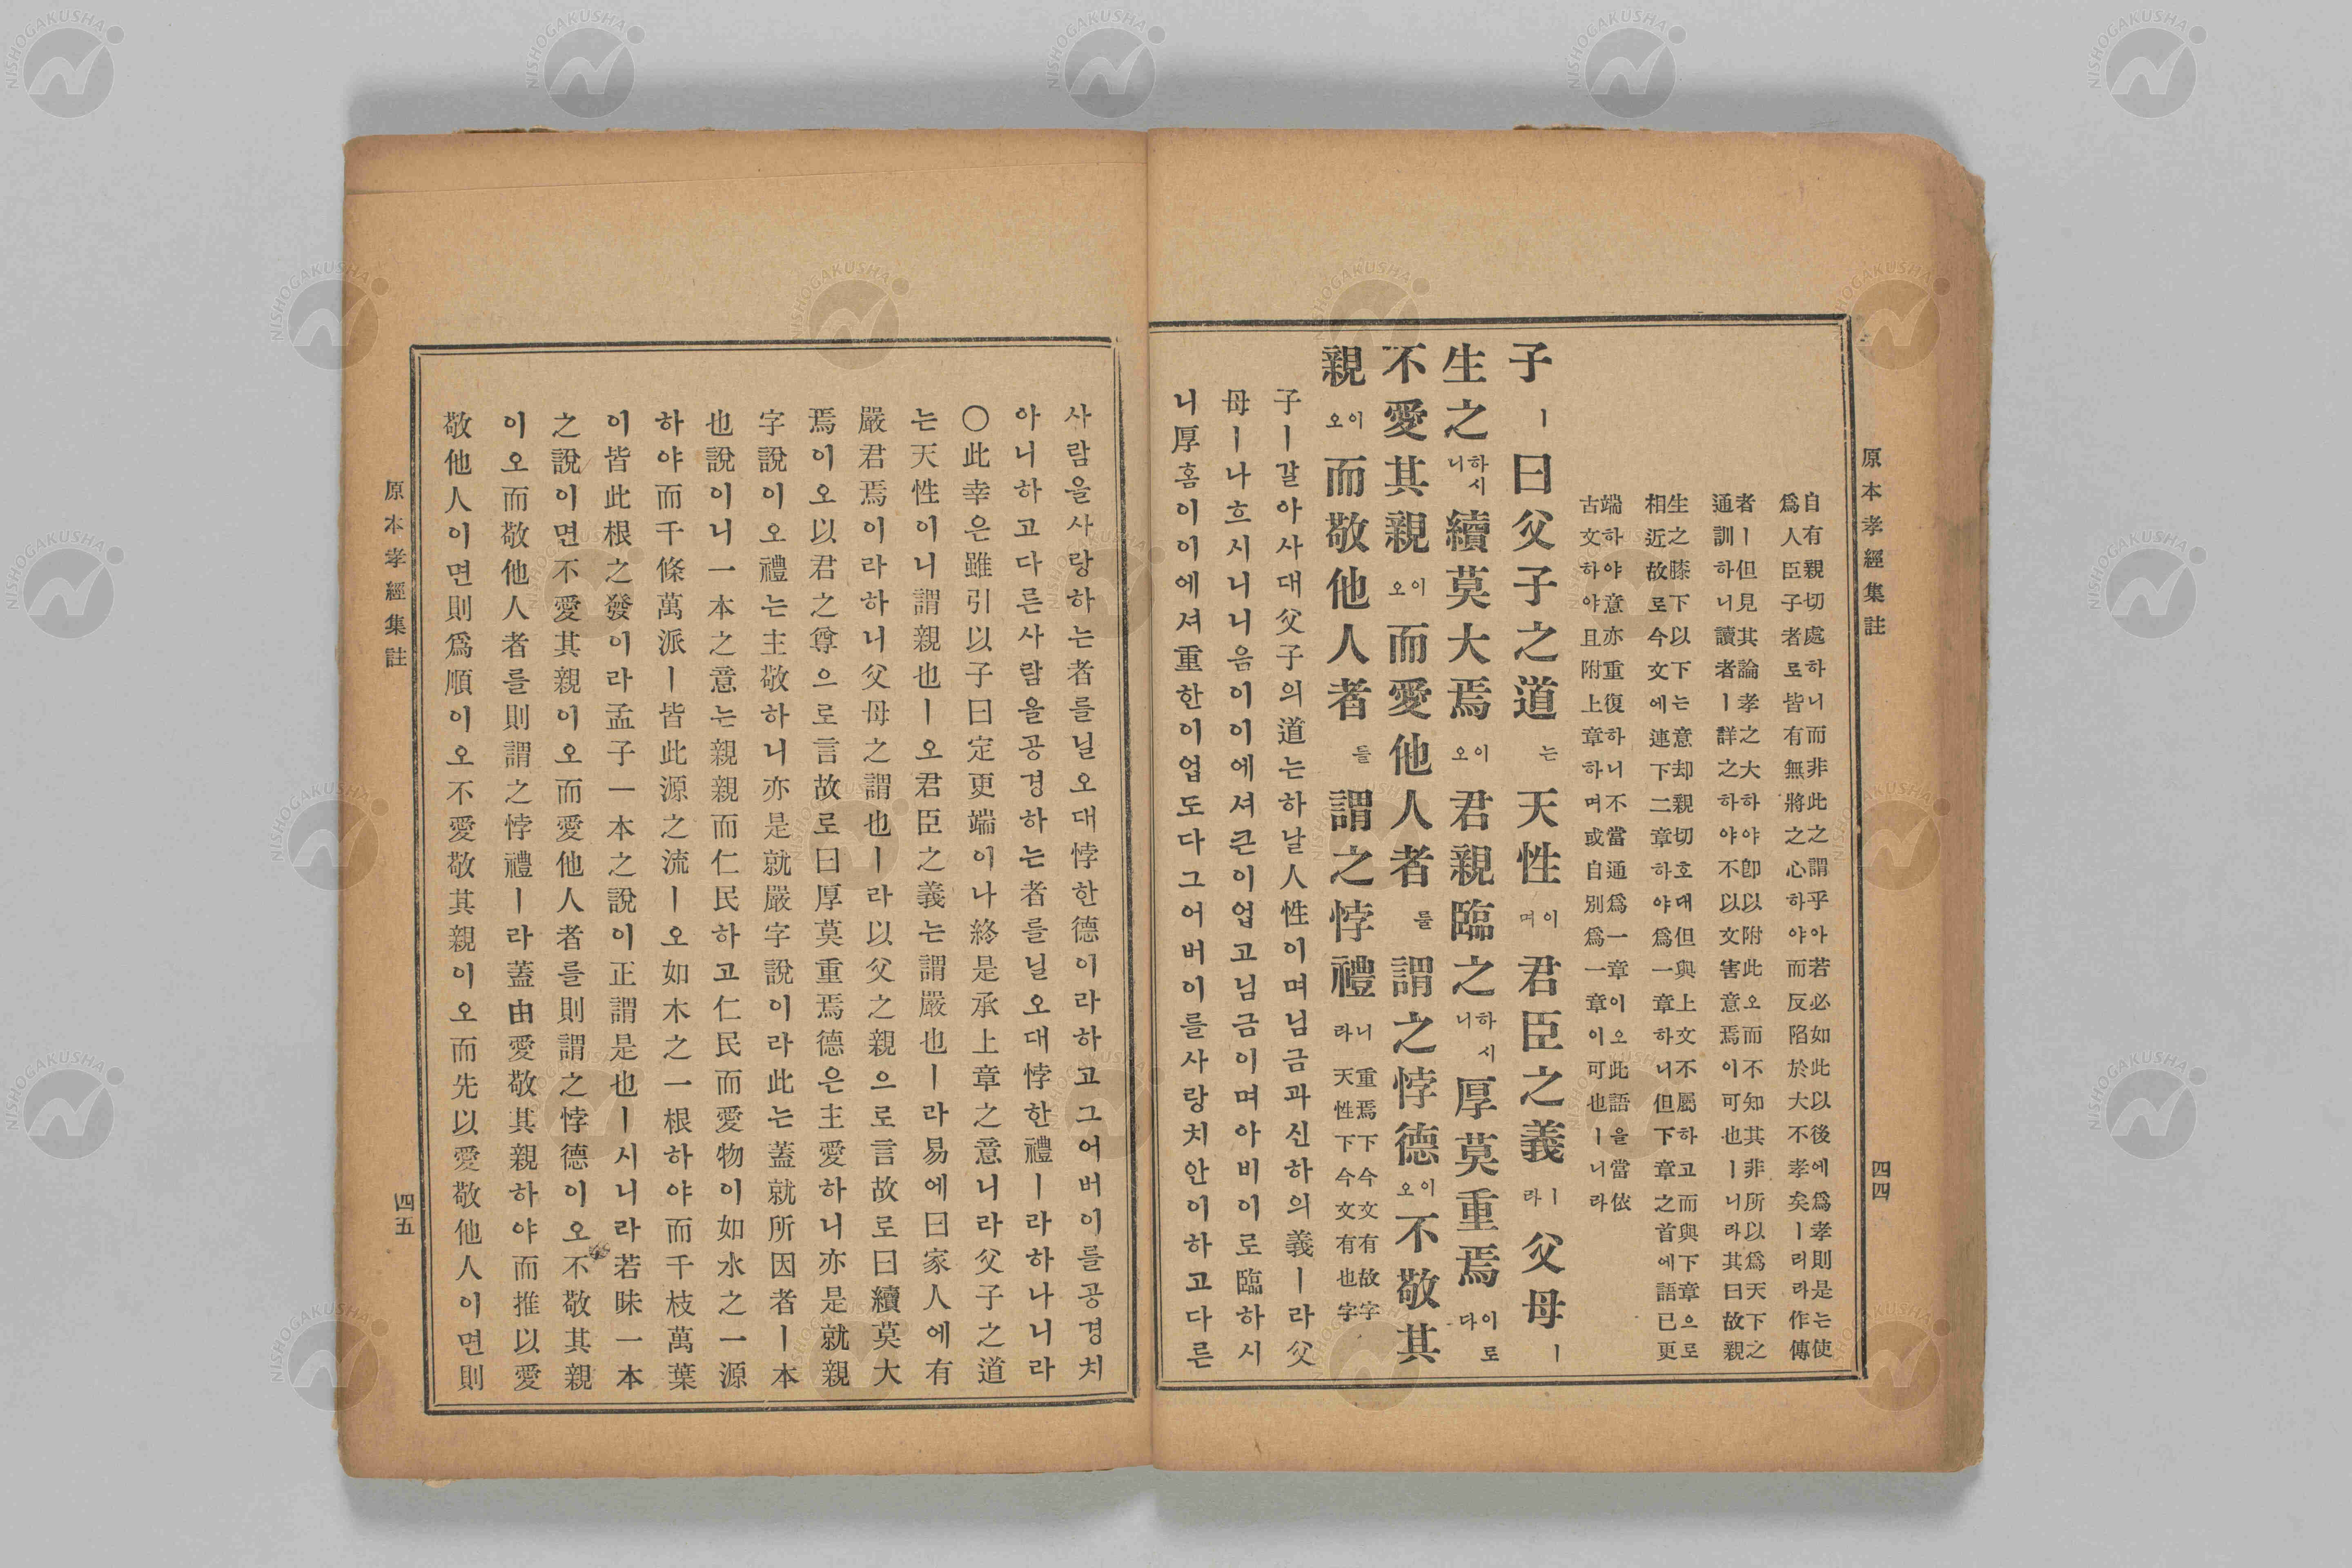 原本孝經集註
四四
自有親切處하니而非此之謂乎아若必如此以後에爲孝則是는使
爲人臣子者로皆有無將之心하야而反陷於大不孝矣ㅣ러라作傳
者ㅣ但見其論孝之大하야卽以附此오而不知其非所以爲天下之
通訓하니讀者ㅣ詳之하야不以文害意焉이可也ㅣ니라其曰故親
生之膝下以下는意却親切호대但與上文不屬하고而與下章으로
相近故로今文에連下二章하야爲一章하니但下章之首에語已更
端하야意亦重復하니不當通爲一章이오此語을當依
古文하야且附上章하며或自別爲一章이可也ㅣ니라
子ㅣ曰父子之道는天性이며君臣之義ㅣ라父母ㅣ
生之하시니續莫大焉이오君親臨之하시니厚莫重焉이로다
不愛其親이오而愛他人者를謂之悖德이오不敬其
親이오而敬他人者들謂之悖禮니라重焉下今文有故字天性下今文有也字
子ㅣ갈아사대父子의道는하날人性이며님금과신하의義ㅣ라父
母ㅣ나흐시니니음이이에셔큰이업고님금이며아비이로臨하시
니厚홈이이에셔重한이업도다그어버이를사랑치안이하고다른
사람을사랑하는者를닐오대悖한德이라하고그어버이를공경치
아니하고다른사람올공경하는者를닐오대悖한禮ㅣ라하나니라
〇此幸은雖引以子曰定更端이나終是承上章之意니라父子之道
는天性이니謂親也ㅣ오君臣之義는謂嚴也ㅣ라易에曰家人에有
嚴君焉이라하니父母之謂也ㅣ라以父之親으로言故로曰續莫大
焉이오以君之尊으로言故로曰厚莫重焉德은主愛하니亦是就親
字說이오禮는主敬하니亦是就嚴字說이라此는蓋就所因者ㅣ本
也說이니一本之意는親親而仁民하고仁民而愛物이如水之一源
하야而千條萬派ㅣ皆此源之流ㅣ오如木之一根하야而千枝萬葉
이皆此根之發이라孟子一本之說이正謂是也ㅣ시니라若昧一本
之說이면不愛其親이오而愛他人者를則謂之悖德이오不敬其親
이오而敬他人者를則謂之悖禮ㅣ라蓋由愛敬其親하야而推以愛
敬他人이면則爲順이오不愛敬其親이오而先以愛敬他人이면則
原本孝經集註
四五